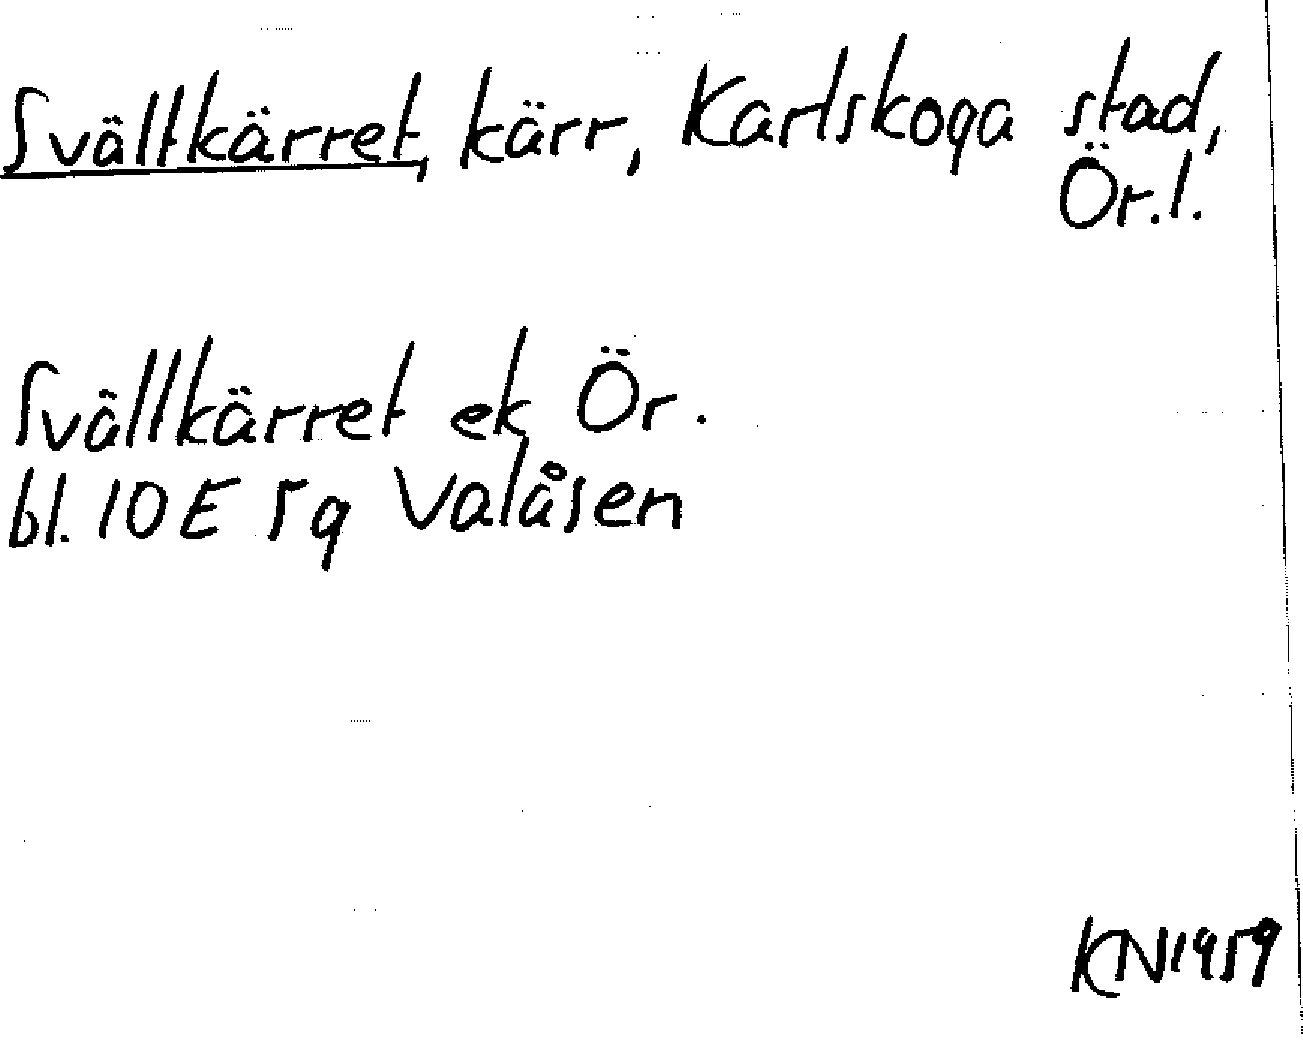 Svältkärret, kärr, Karlskoga stad,
Ör.l.
Svällkärret ek Ör.
bl. 10E 5g Valåsen
KN1959